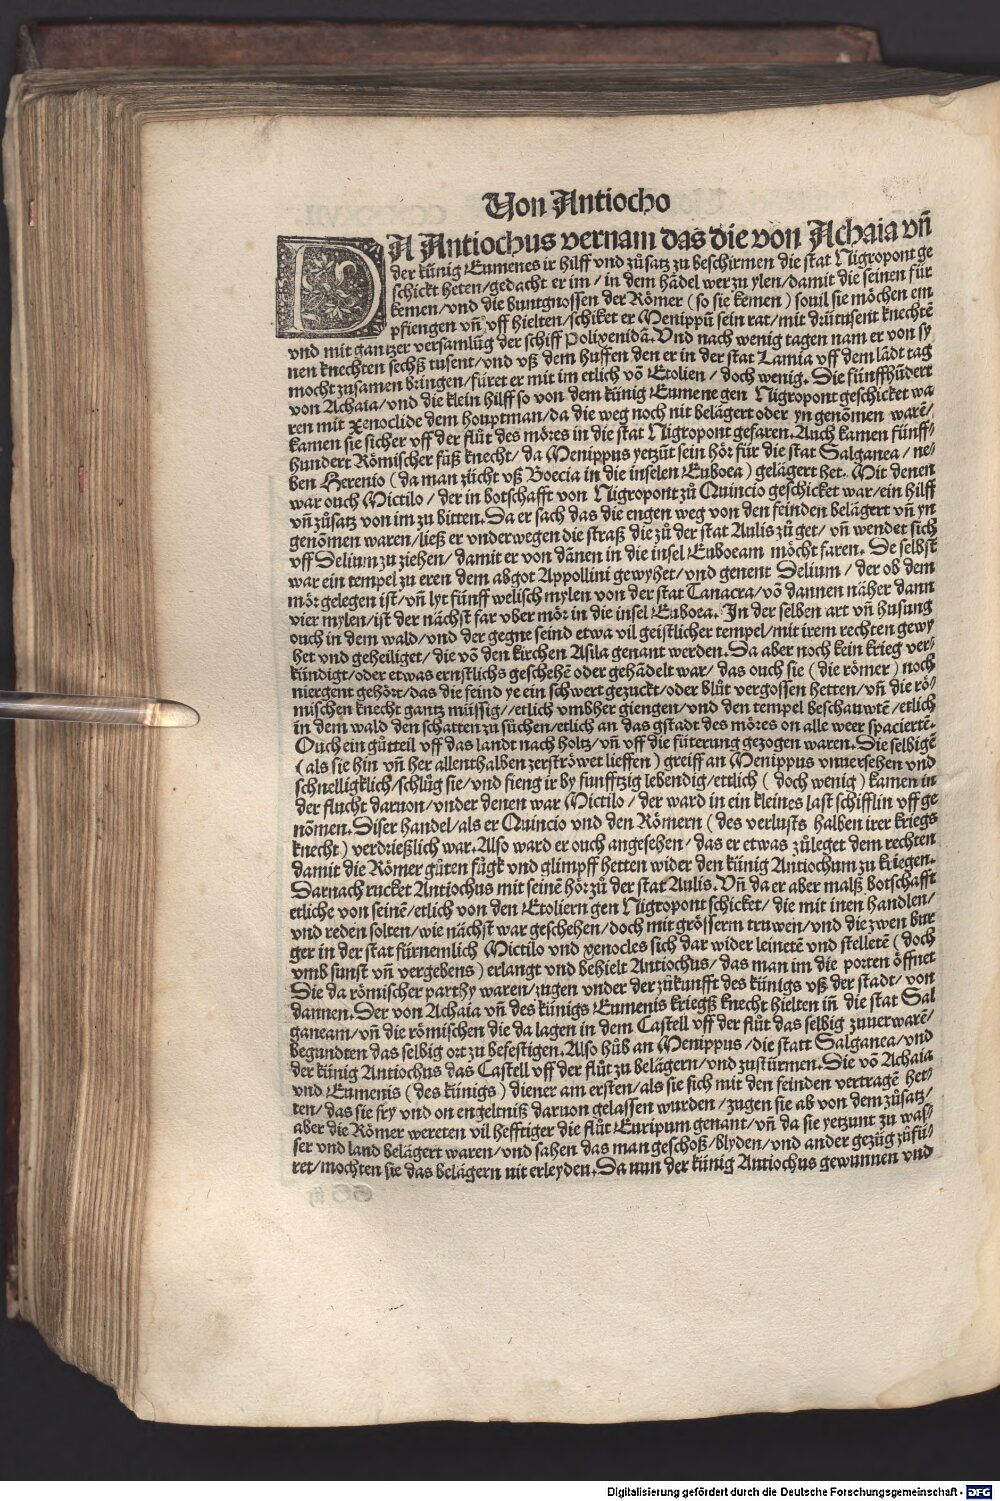 Von Antiocho
DA Antiochus vernam das die von Achaia vñ
der künig Eumenes ir hilff vnd zůsatz zu beschirmen die stat Nigropont ge
schickt heten/gedacht er im/in dem hãdel wer zu ylen/damit die seinen für
kemen/vnd die buntgnossen der Römer (so sie kemen) souil sie möchen em
pfiengen vñ vff hielten/schiket er Menippũ sein rat/mit drü tusent knechtẽ
vnd mit gantzer versamlũg der schiff Polixenidã. Vnd nach wenig tagen nam er von sy
nen knechten sechß tusent/vnd vß dem huffen den er in der stat Lamia vff dem lãdt tag
mocht zusamen bringen/füret er mit im etlich võ Etolien/doch wenig. Die fünffhũdert
von Achaia/vnd die klein hilff so von dem künig Eumene gen Nigropont geschicket wa
ren mit Xenoclide dem houptman/da die weg noch nit belãgert oder yn genõmen warẽ/
kamen sie sicher vff der flůt des mőres in die stat Nigropont gefaren. Auch kamen fünff-
hundert Römischer fůß knecht/da Menippus yetzůt sein hőr für die stat Salganea/ne-
ben Herenio (da man zücht vß Boecia in die inselen Euboea) gelägert het. Mit denen
war ouch Mictilo/der in botschafft von Nigropont zů Quincio geschicket war/ein hilff
vñ zůsatz von im zu bitten. Da er sach das die engen weg von den feinden belägert vñ yn
genõmen waren/ließ er vnderwegen die straß die zů der stat Aulis zů get/vñ wendet sich
vff Delium zu ziehen/damit er von dãnen in die insel Euboeam möcht faren. De selbst
war ein tempel zu eren dem abgot Appollini gewyhet/vnd genent Delium/der ob dem
mőr gelegen ist/vñ lyt fünff welisch mylen von der stat Tanacra/võ dannen näher dann
vier mylen/ist der nächst far vber mőr in die insel Euboea. In der selben art vñ husung
ouch in dem wald/vnd der gegne seind etwa vil geistlicher tempel/mit irem rechten gewy
het vnd geheiliget/die võ den kirchen Asila genant werden. Da aber noch kein krieg ver-
kündigt/oder etwas ernstlichs geschehẽ oder gehãdelt war/das ouch sie (die römer) noch
niergent gehört/das die feind ye ein schwert gezuckt/oder blůt vergossen hetten/vñ die rö-
mischen knecht gantz müssig/etlich vmbher giengen/vnd den tempel beschauwtẽ/etlich
in dem wald den schatten zu sůchen/etlich an das gstadt des mőres on alle weer spaciertẽ.
Ouch ein gůtteil vff das landt nach holtz/vñ vff die fůterung gezogen waren. Die selbigẽ
(als sie hin vñ her allenthalben zerströwet lieffen) greiff an Menippus vnuersehen vnd
schnelligklich/schlůg sie/vnd fieng ir by funfftzig lebendig/ettlich (doch wenig) kamen in
der flucht daruon/vnder denen war Mictilo/der ward in ein kleines last schifflin vff ge
nõmen. Diser handel/als er Quincio vnd den Römern (des verlusts halben irer kriegs
knecht) verdrießlich war. Also ward er ouch angesehen/das er etwas zůleget dem rechten
damit die Römer gůten fůgk vnd glimpff hetten wider den künig Antiochum zu kriegen.
Darnach rucket Antiochus mit seinẽ hőr zů der stat Aulis. Vñ da er aber malß botschafft
etliche von seinẽ/etlich von den Etoliern gen Nigropont schicket/die mit inen handlen/
vnd reden solten/wie nächst war geschehen/doch mit grösserm truwen/vnd die zwen bur
ger in der stat fürnemlich Mictilo vnd xenocles sich dar wider leinetẽ vnd stelletẽ (doch
vmb sunst vñ vergebens) erlangt vnd behielt Antiochus/das man im die porten öffnet
Die da römischer parthy waren/zugen vnder der zůkunfft des künigs vß der stadt/von
dannen. Der von Achaia vñ des künigs Eumenis kriegß knecht hielten iñ die stat Sal
ganeam/vñ die römischen die da lagen in dem Castell vff der flůt das selbig zuuerwarẽ/
begundten das selbig ort zu befestigen. Also hůb an Menippus/die statt Salganea/vnd
der künig Antiochus das Castell vff der flůt zu belägern/vnd zustürmen. Die võ Achaia
vnd Eumenis (des künigs) diener am ersten/als sie sich mit den feinden vertragẽ het-
ten/das sie fry vnd on engeltniß daruon gelassen wurden/zugen sie ab von dem zůsatz/
aber die Römer wereten vil hefftiger die flůt Euripum genant/vñ da sie yetzunt zu was-
ser vnd land belägert waren/vnd sahen das man geschoß/blyden/vnd ander gezüg zůfü-
ret/mochten sie das belägern nit erleyden. Da nun der künig Antiochus gewunnen vnd
Digitalisierung gefördert durch die Deutsche Forschungsgemeinschaft - DFG